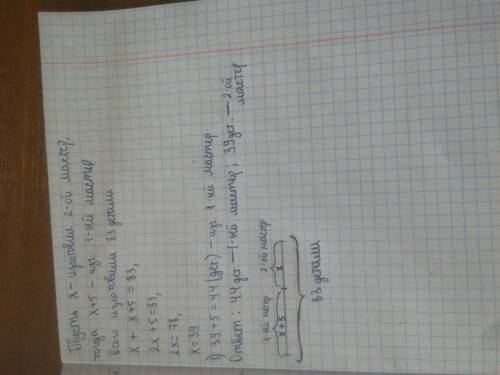 Пусть x - изготовил 2-ой мастер,
тогда x+5 - изг 1-ый мастер
всего изготовили 83 детали
x + x+5 = 83,
2x+5=83,
2x=78,
x=39
1) 39+5=44(дет) - изг 1-ый мастер
Ответ: 44 дет - 1-ый мастер; 39 дет. - 2-ой
мастер
1-ый мастр 2-ой мастр
x+5 x
83 детали